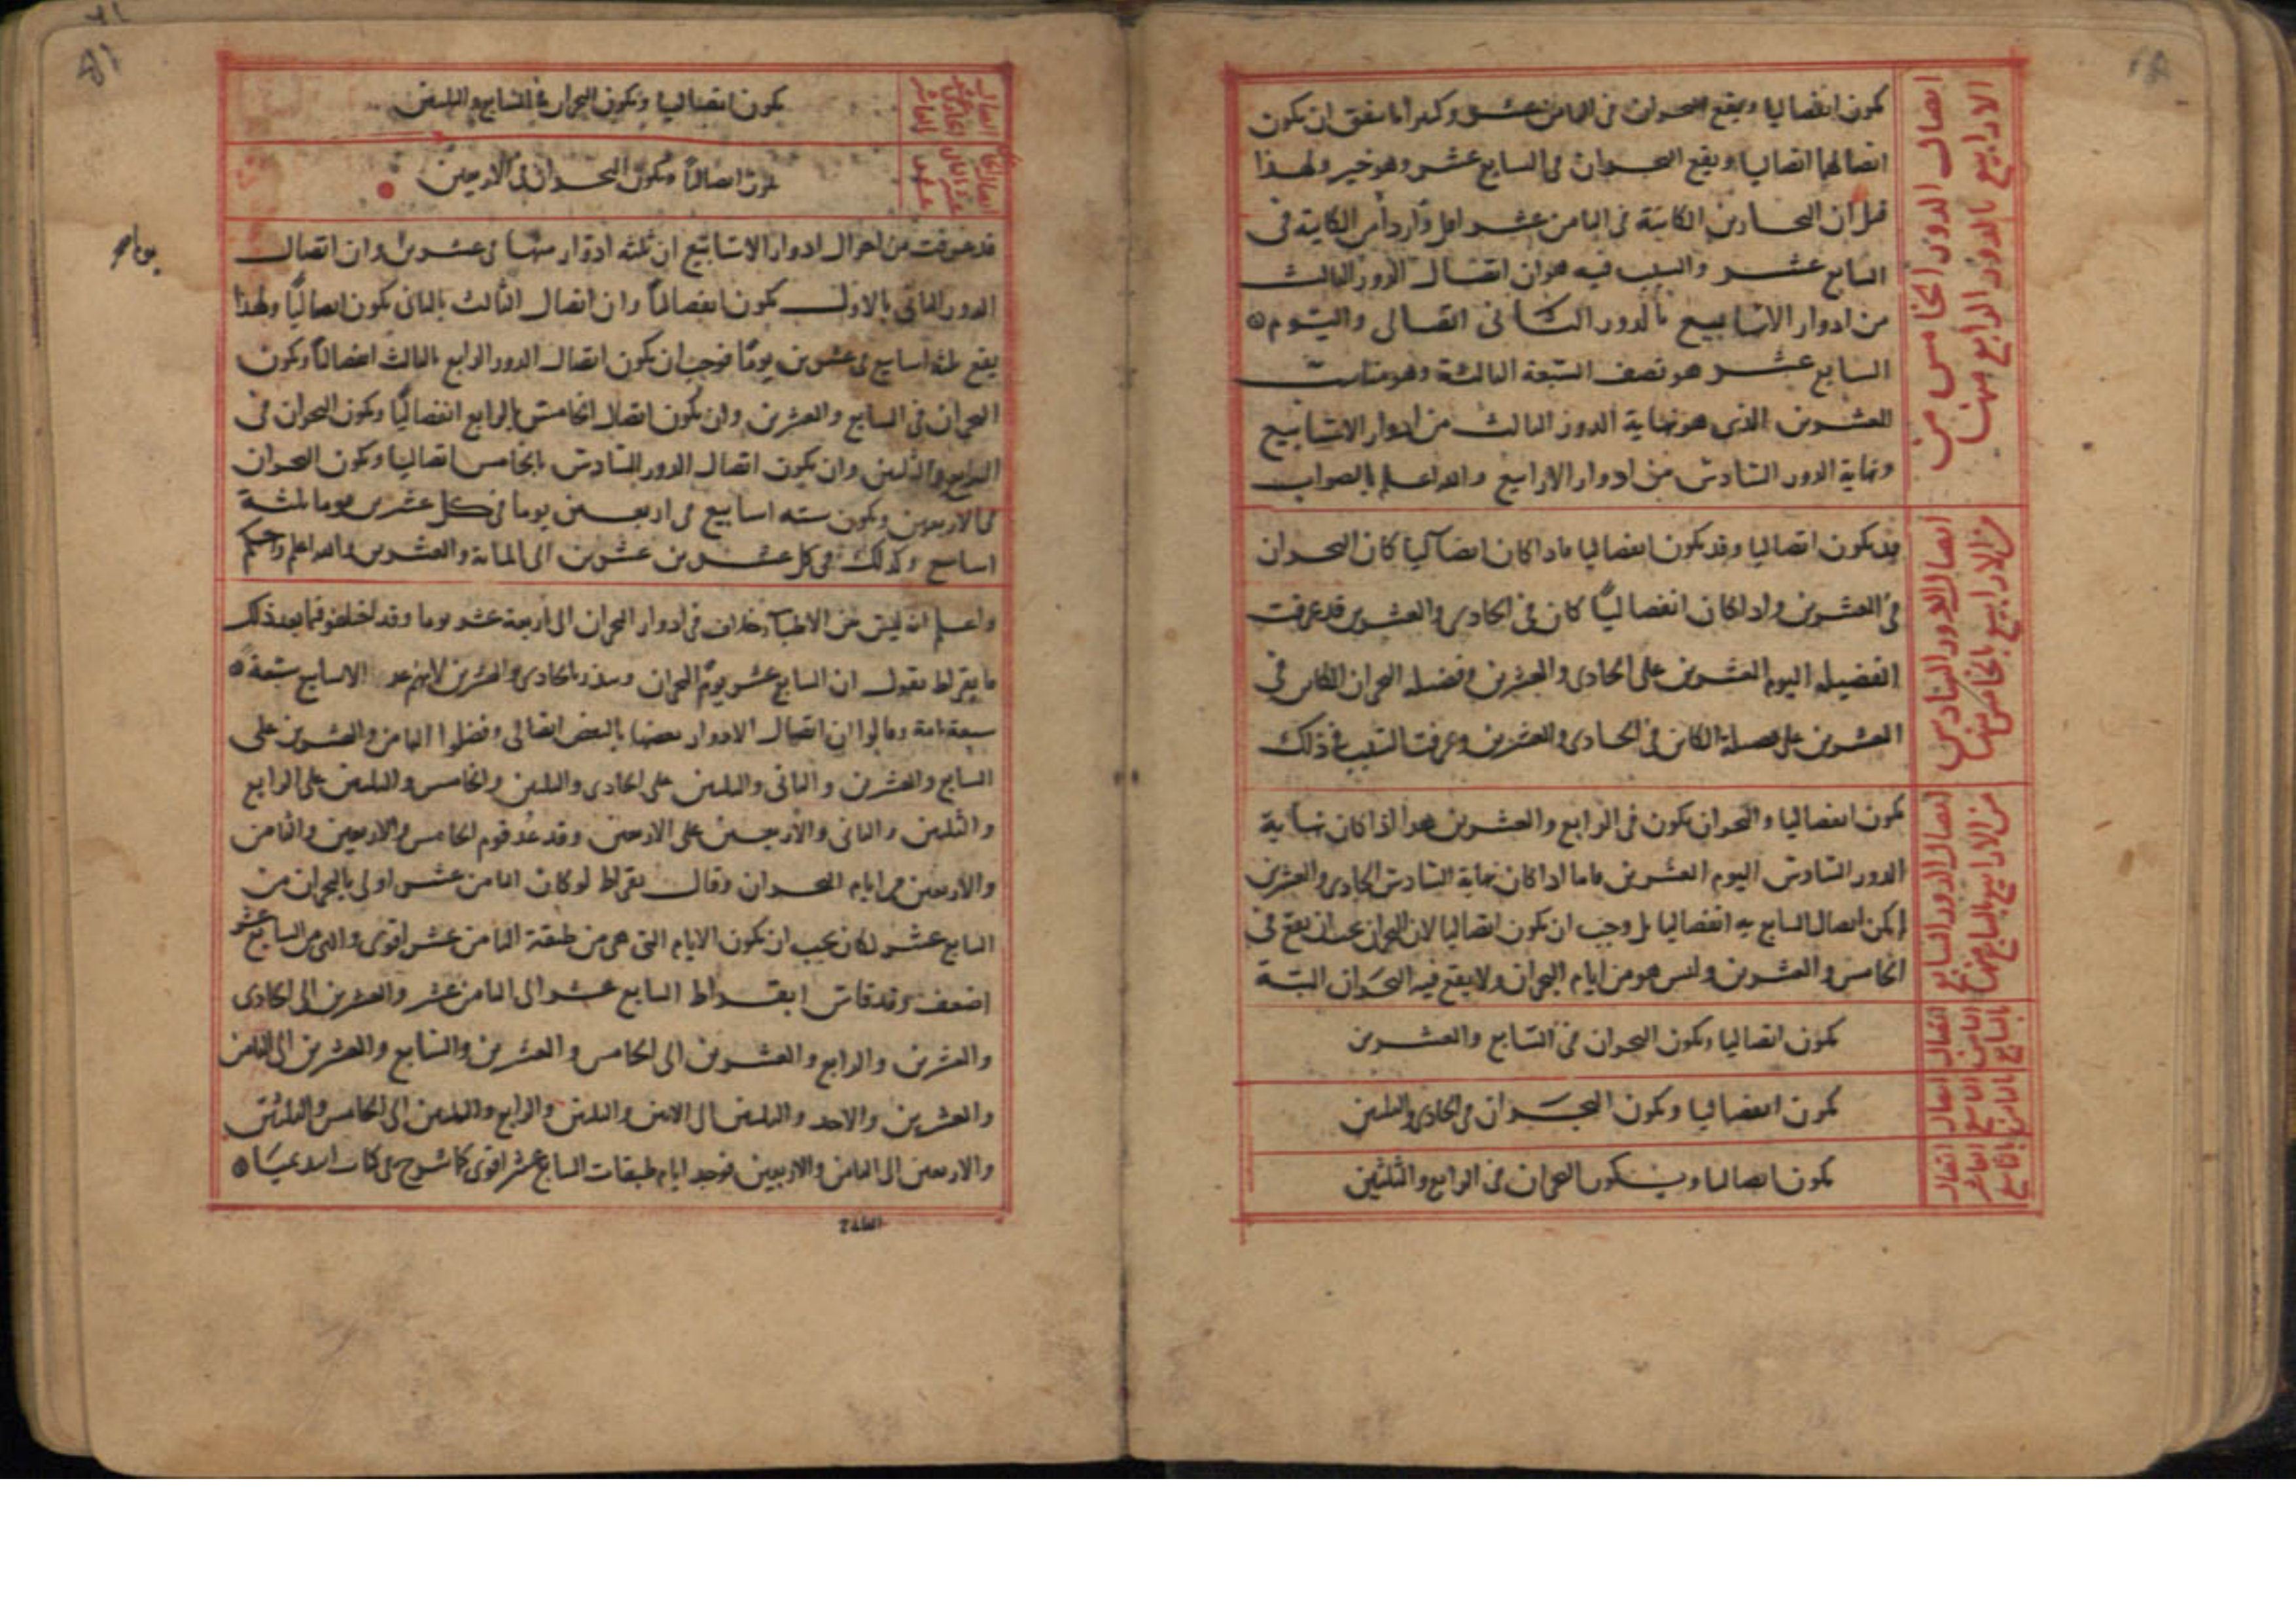 اتصال الدور الخامس من
الاراابيع بالدور الرابع منها
يكون انفصاليا ويقع البحران فى الثامن عشر وكثيرا ما يتفق ان يكون
اتصالهما اتصاليا ويقع البحران فى السابع عشر وهو خير ولهذا
قيل ان البحارين الكاينة فى الثامن عشر اقل واردأ من الكاينة فى
السابع عشر والسبب فيه هو ان اتصال الدور الثالث
من ادوار الاسابيع بالدور الثانى اتصالى واليوم
السابع عشر هو نصف السبعة الثالثة وهو مناسب
للعشرين الذى هو نهاية الدور الثالث من ادوار الاسابيع
ونهاية الدور السادس من ادوار الارابيع والله اعلم بالصواب
اتصال الدور السادس
من الارابيع بالخامس منها
قد يكون اتصاليا وقد يكون انفصاليا فاذا كان اتصاليا كان البحران
فى العشرين واذا كان انفصاليا كان فى الحادى والعشرين قد عرفت
الفضيلة اليوم العشرين على الحادى والعشرين وفضيلة البحران الكاين فى
العشرين على فضيلة الكاين فى الحادى والعشرين وعرفت السبب فى ذلك
اتصال الدور السابع
من الارابيع بالسادس منها
يكون انفصاليا والبحران يكون فى الرابع والعشرين هذا اذا كان نهاية
الدور السادس اليوم العشرين فاما اذا كان نهاية السادس الحادى والعشرين
لم يكن اتصال السابع به انفصاليا بل وجب ان يكون اتصاليا لان البحران يجب ان يقع فى
الخامس والعشرين وليس هو من ايام البحران ولا يقع فيه البحران البتة
اتصال
الثامن
بالسابع
يكون اتصاليا ويكون البحران فى السابع والعشرين
اتصال
التاسع
بالثامن
يكون انفصاليا ويكون البحران فى الحادى والثلثين
اتصال
العاشر
بالتاسع
يكون انفصاليا ويكون البحران فى الرابع والثلثين
يكون اتصاليا ويكون البحران فى السابع والثلثين
يكون اتصاليا ويكون البحران فى الاربعين
قد عرفت من احوال ادوار الاسابيع ان ثلثة ادوار منها فى عشرين وان اتصال
الدور الثانى بالاول يكون انفصاليا وان اتصال الثالث بالثانى يكون اتصاليا ولهذا
يقع ثلثة اسابيع فى عشرين يوما فوجب ان يكون اتصال الدور الرابع بالثالث انفصاليا ويكون
البحران فى السابع والعشرين وان يكون اتصال الخامس بالرابع انفصاليا ويكون البحران فى
الرابع والثلثين وان يكون اتصال الدور السادس بالخامس اتصاليا ويكون البحران
فى الاربعين ويكون ستة اسابيع فى اربعين يوما فى كل عشرين يوما ثلثة
اسابيع وكذلك فى كل عشرين عشرين الى المائة والعشرين والله اعلم واحكم
واعلم ان ليس بين الاطباء خلاف فى ادوار البحران الى اربعة عشر يوما وقد اختلفوا فيما بعد ذلك
فابقراط يقول ان السابع عشر يوم البحران بالحادى والعشرين لانهم الاسابيع سبعة
سبعة تامة وقالوا ان اتصال الادوار بعضها بالبعض اتصالى وفضلوا الثامن والعشرين على
السابع والعشرين والثانى والثلثين على الحادى والثلثين والخامس والثلثين على الرابع
والثلثين والثانى والاربعين على الاربعين وقد عد قوم الخامس والاربعين والثامن
والاربعين من ايام البحران وقال بقراط لو كان الثامن عشر اولى بالبحران من
السابع عشر لكان يجب ان يكون الايام التى هى من طبقة الثامن عشر اقوى والتى من السابع عشر
اضعف وقد قاس ابقراط السابع عشر الى الثامن عشر والعشرين الى الحادى
والعشرين والرابع والعشرين الى الخامس والعشرين والسابع والعشرين الى الثامن
والعشرين والاحد والثلثين الى الاثنين والثلثين والرابع والثلثين الى الخامس والثلثين
والاربعين الى الثامن والاربعين فوجد ايام طبقات السابع عشر اقوى كما شرح فى كتاب ابديميا